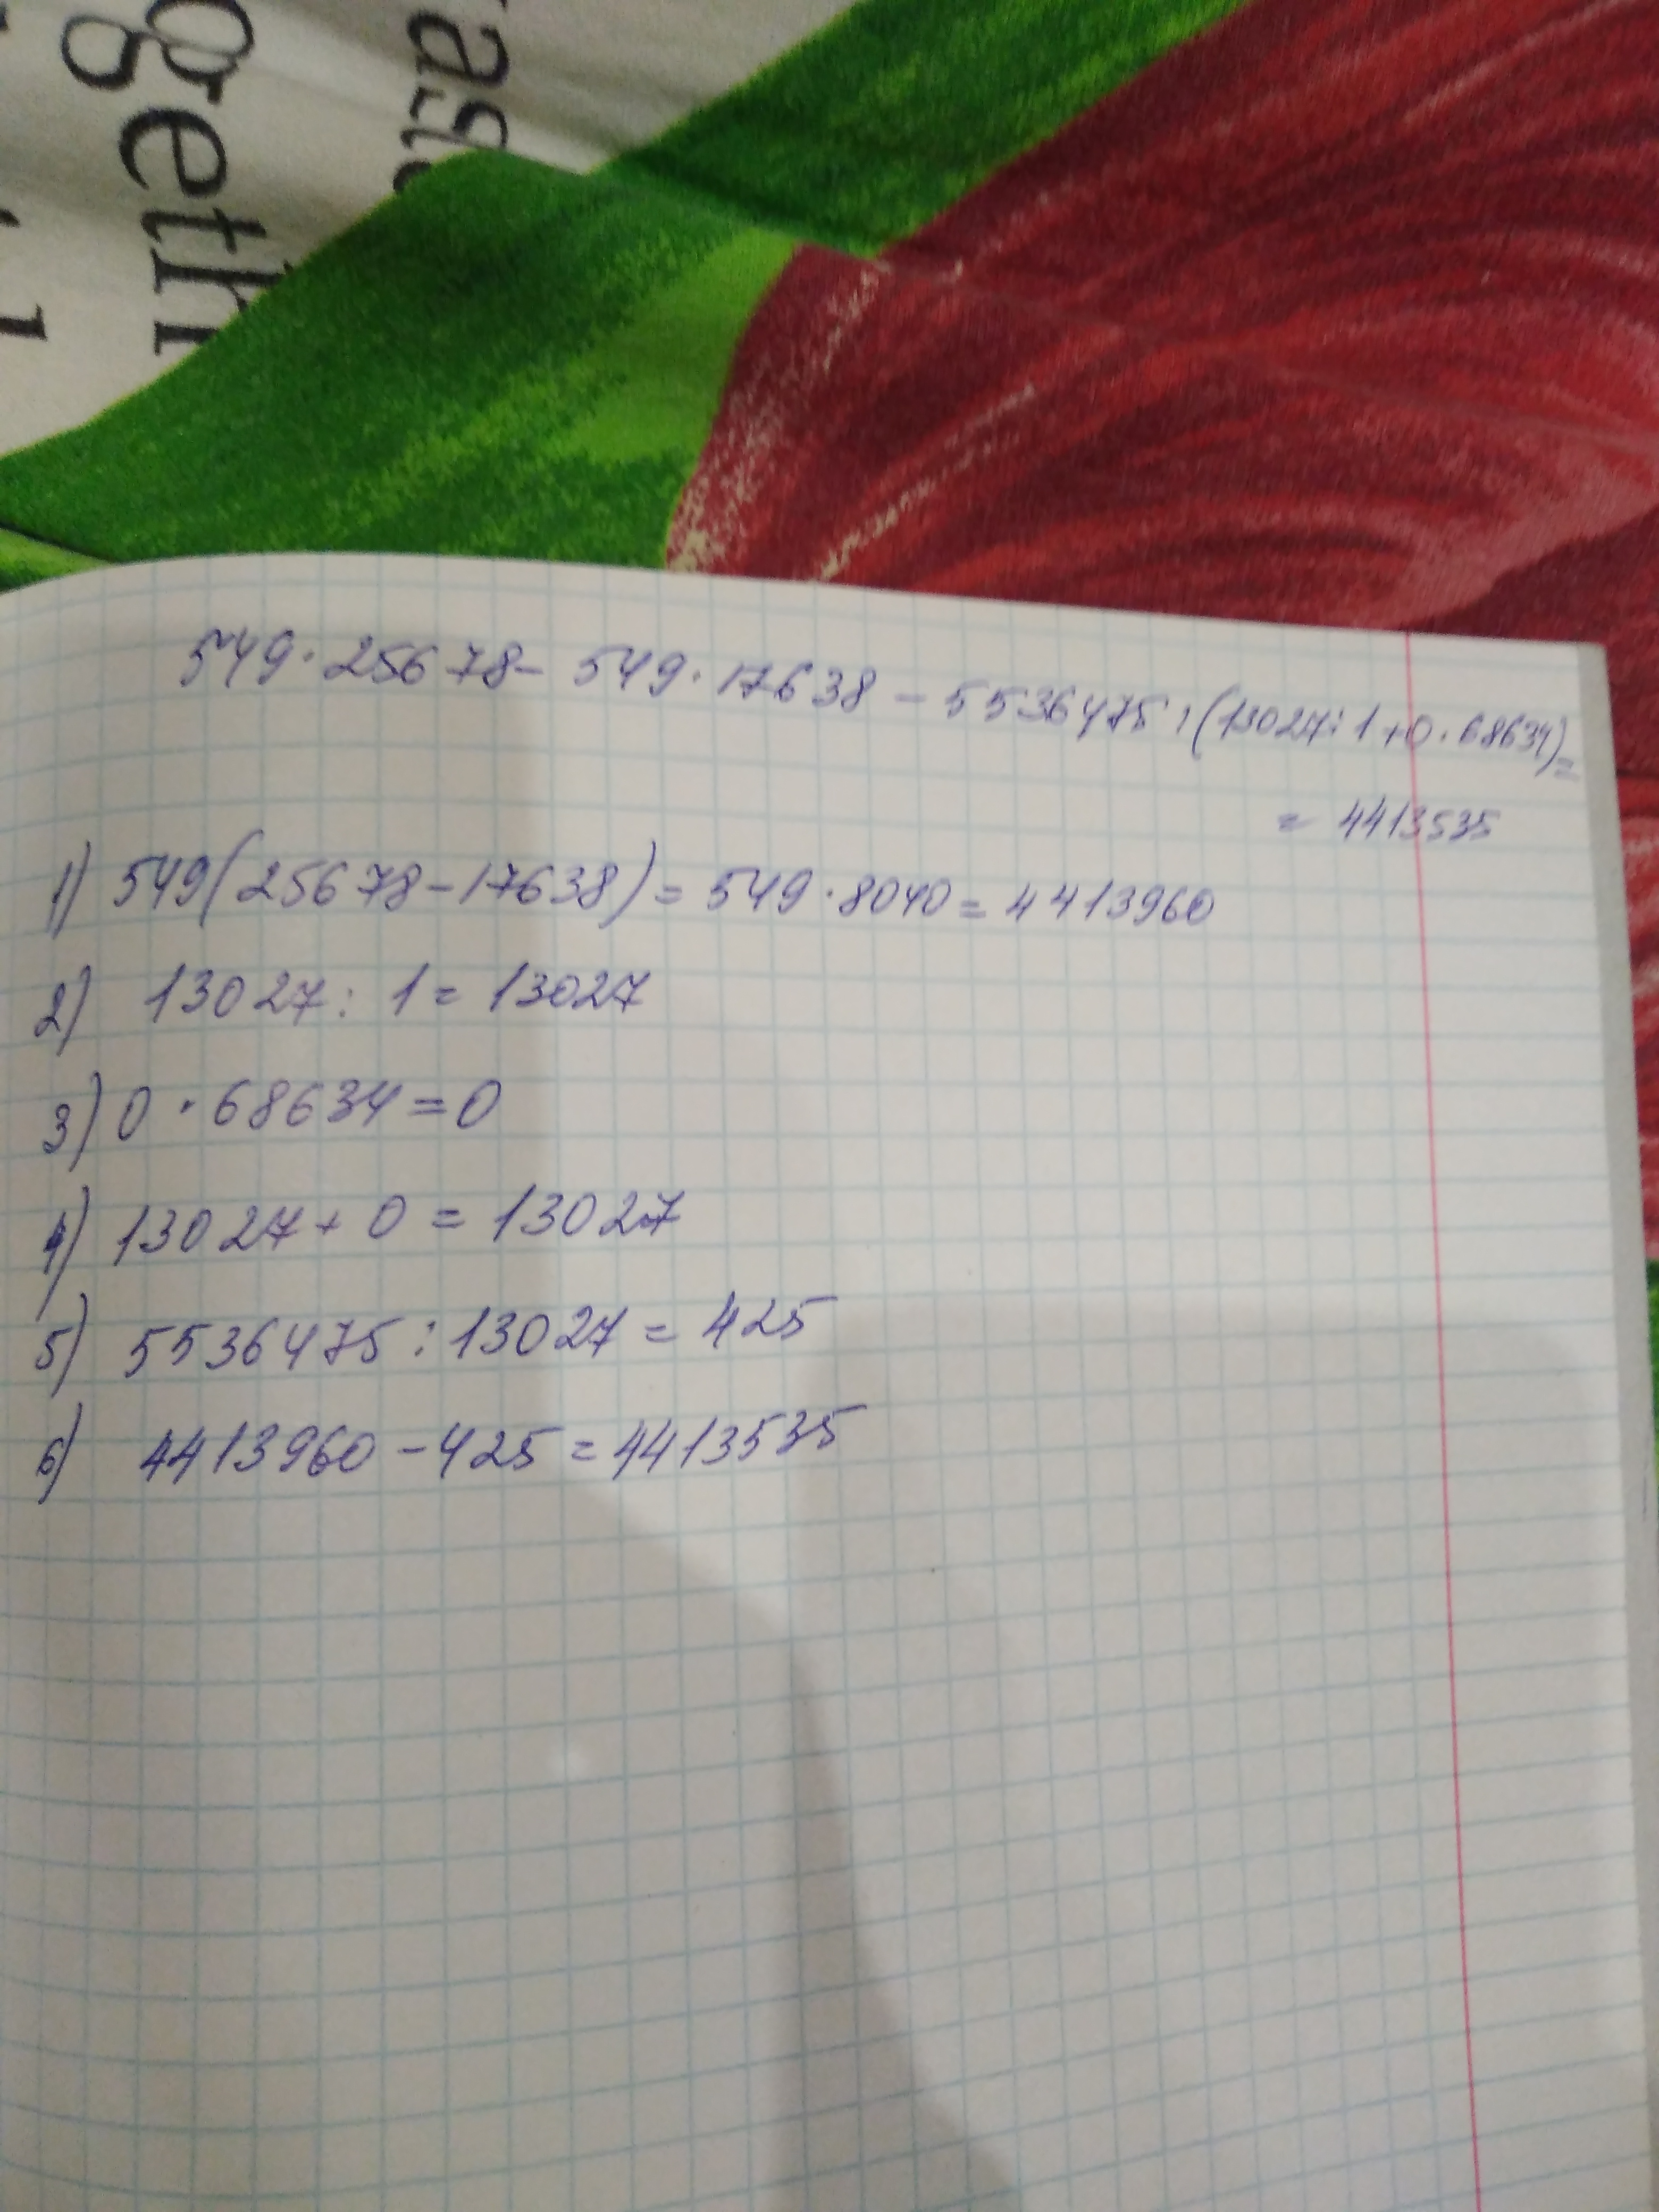 geth
549·25678-549·17638-5536475:(13027:1+0·68634)=
=4413535
1) 549(25678-17638)=549·8040=4413960
2) 13027:1=13027
3) 0·68634=0
4) 13027+0=13027
5) 5536475:13027=425
6) 4413960-425=4413535